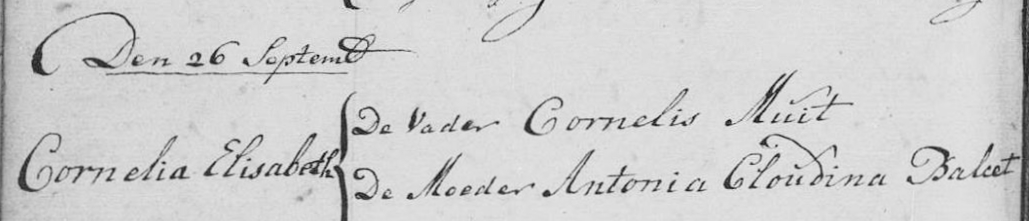 Den 26 Septemb
De Vader Cornelis Muit
Cornelia Elisabeth
De Moeder Antonia Cloudina Balcet